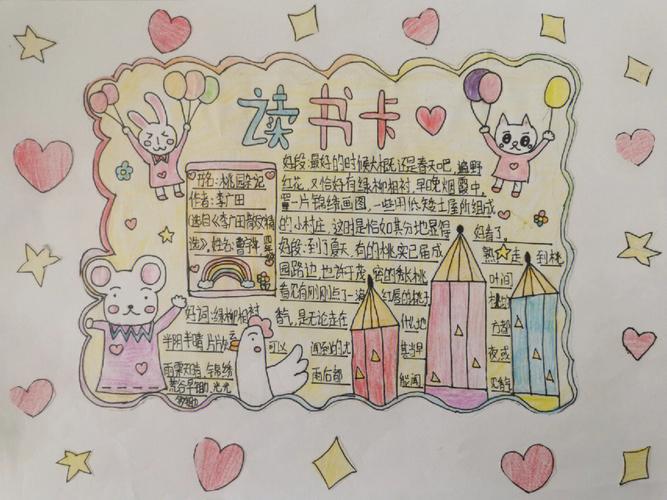 读书卡
书名:桃园杂记
作者:李广田
选自《李广田散文精
选》,姓名:曹
好段:最好的时候大概还是春天吧,遍野
红花,又恰好有绿柳相衬,早晚烟霞中,
罩一片锦绣画图,一些用低矮土屋所组成
的小村庄,这时是恰如其分地显得好看了。
好段:到了夏天,有的桃实已届成熟 走到桃
园路边,也许于茂密的秀长桃叶间
看见有刚刚点了一滴红唇的桃子
香气,是无论走在 地方都
可以闻到的 尤其当早夜或
雨后都能闻见
好词:绿柳相衬
半阴半晴 片片
雨零知者 锦绣